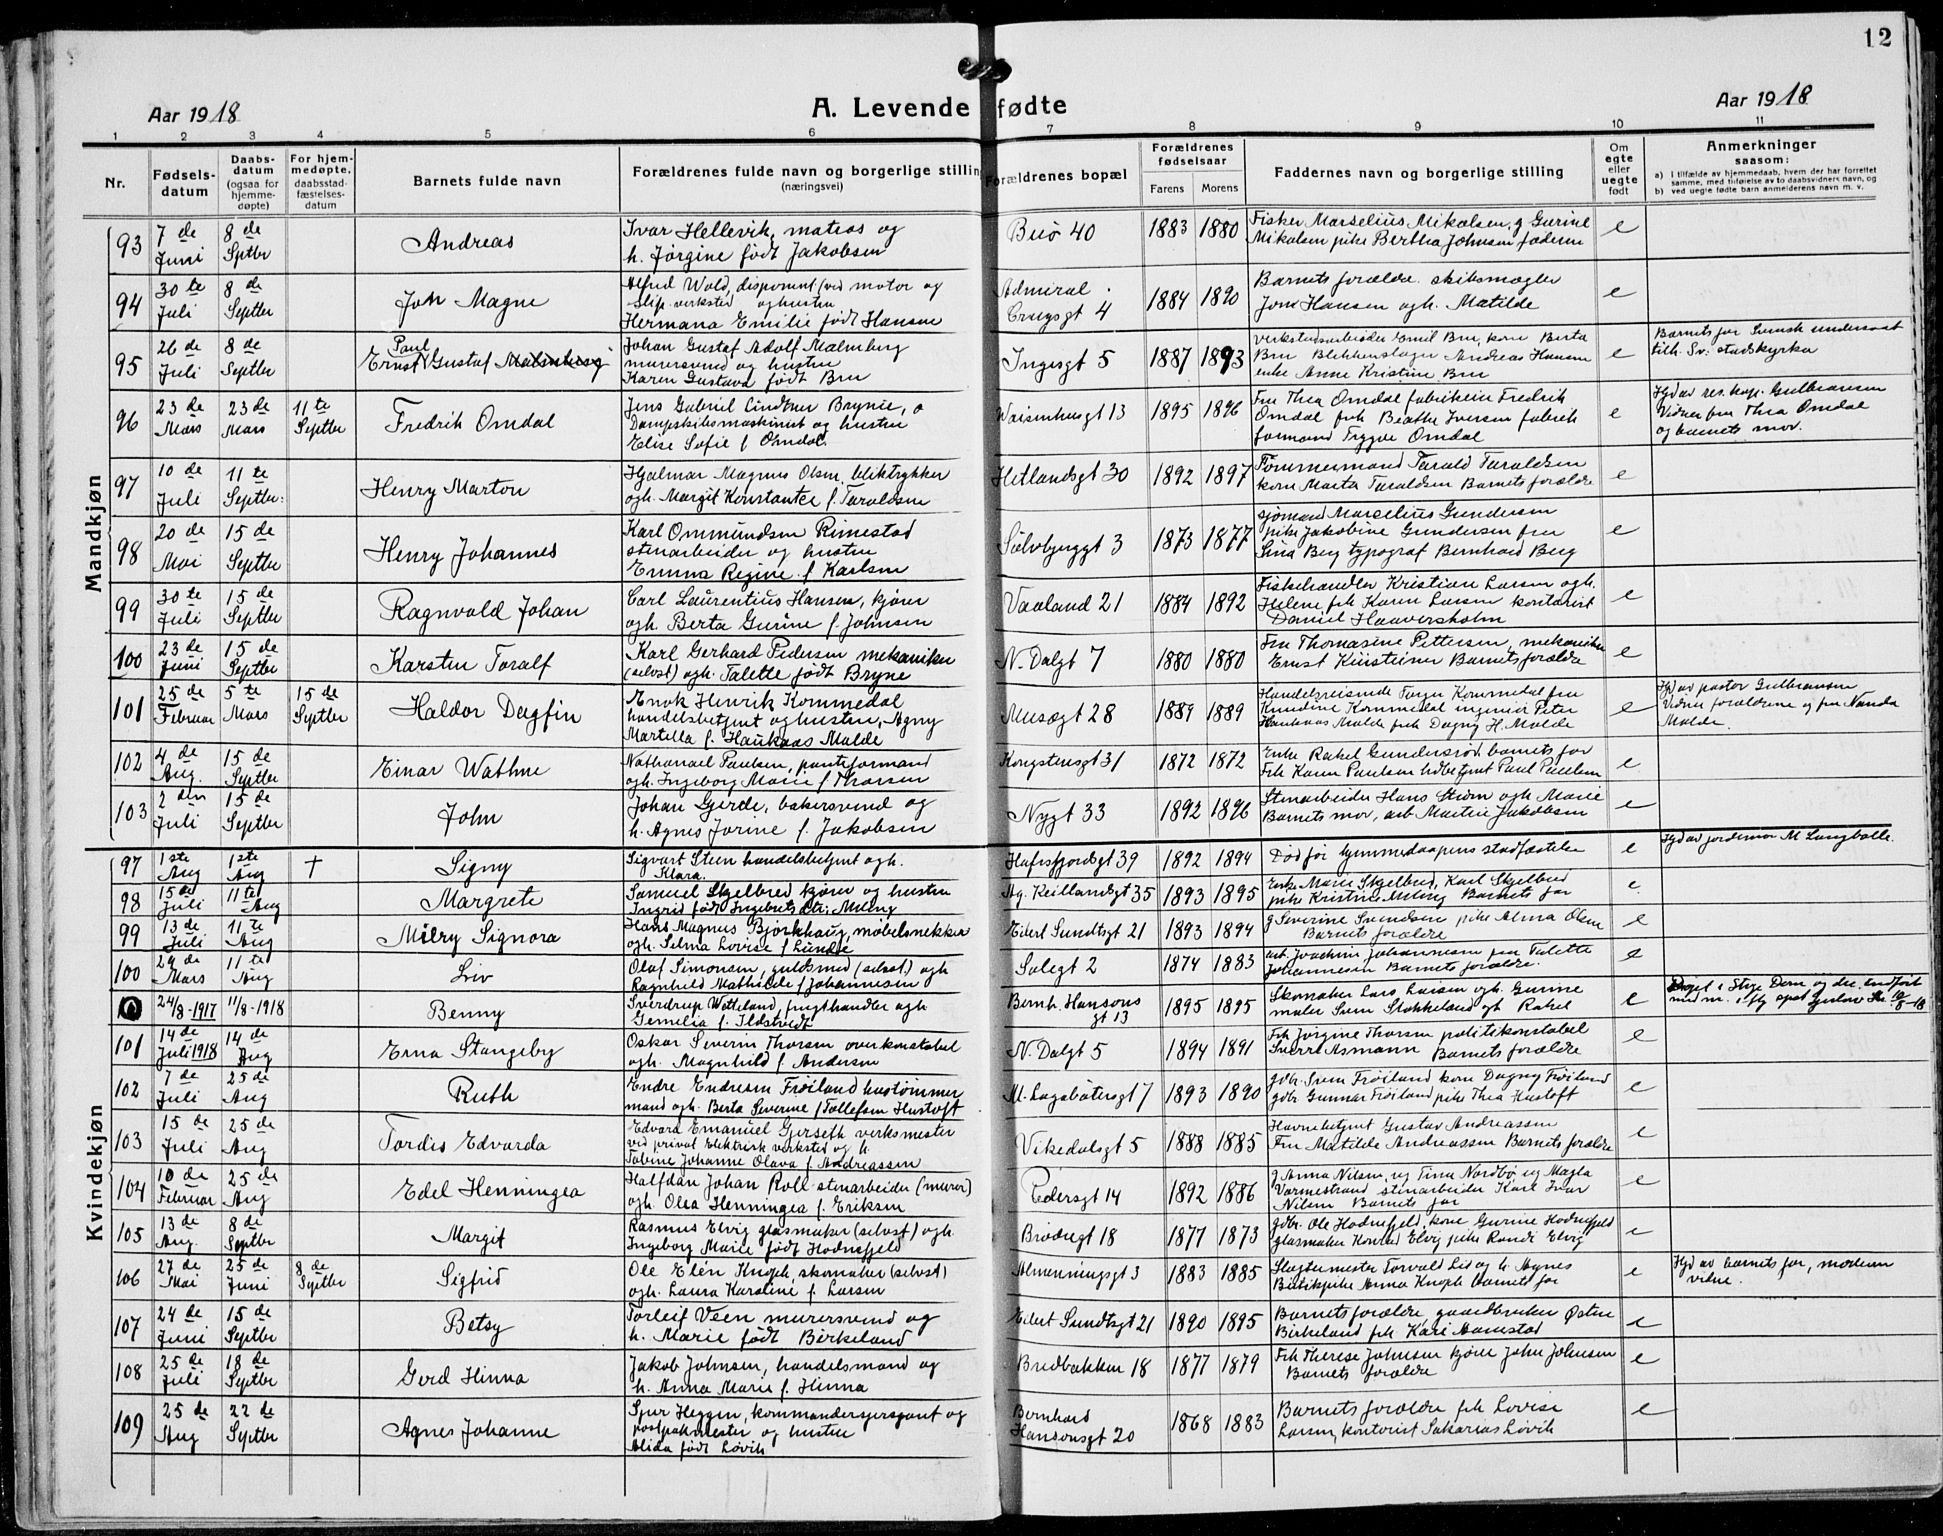 12
Aar 1918
A. Levende fødte
Aar 1918
1 2 3 4 5 6 7 8 9 10 11
Nr.
Fødsels-
datum
Daabs-
datum
(ogsaa for
hjemme-
døpte)
For hjem-
medøpte,
daabsstad-
fæstelses-
datum
Barnets fulde navn
Forældrenes fulde navn og borgerlige stilling
(næringsvei)
Forældrenes bopæl
Forældrenes
fødselsaar
Farens Morens
Faddernes navn og borgerlig stilling
Om
egte
eller
uegte
født
Anmerkninger
saasom:
a) I tilfælde av hjemmedaab, hvem der har forrettet
samme, med tilføielse av to daabsvidners navn, og
b) ved uegte fødte barn anmelderens navn m. v.
Mandkjøn
93 7de Juni 8de Septbr Andreas
Ivar Hellevik, matros og
h. Jørgine født Jakobsen
Buø 40 1883 1880
Fisker Marselius Mikalsen, g Gurine
Mikalsen pike Bertha Johnsen
e
94 30te Juli 8de Septbr Joh Magne
Alfred Wold, disponent (ved motor og
slip. verksted og hustru
Hermana Emilie født Hansen
Admiral
Cruysgt 4 1884 1890
Barnets forældre skibsmægler
Jens Hansen ogh. Matilde
e
95 26de Juli 8de Septbr
Paul
Ernst Gustaf Malmberg
Johan Gustaf Adolf Malmberg
murersvend og hustru
Karen Gustava født Bru
Ingesgt 5 1887 1893
verkstedsarbeider Emil Bru, kone Berta
Bru Blikkenslager Andreas Hansen
enke Anne Kristine Bru
e
Barnets far Svensk undersaat
tilh. Sv. statskyrka
96 23de Mars 23de Mars 11te Septbr Fredrik Omdal
Jens Gabriel Lindtner Brynie,
Dampskibsmaskinist og hustru
Elise Sofie f Omdal
Waisenhusgt 13 1895 1896
Fru Thea Omdal fabrikeier Fredrik
Omdal frk Beathe Iversen fabrik
formand Trygve Omdal
e
Hjd av res. kap. Gulbransen
Vidner fru Thea Omdal
og barnets mor.
97 10de Juli 11te Septbr. Henry Marton
Hjalmar Magnus Olsen, bliktrykker
ogh. Margit Konstanter f. Taraldsen
Hetlandsgt 30 1892 1897
Tømmermand Tarald Taraldsen
kone Marta Taraldsen Barnets forældre
e
98 20de Mai 15de Septbr Henry Johannes
Karl Ommundsen Rimestad
stenarbeider og hustru
Emma Regine f Karlsen
Sølvbjerggt 3 1873 1877
sjømand Marselius Gundersen
pike Jakobine Gundersen fru
Sina Berg typograf Bernhard Berg
e
99 30te Juli 15de Septbr Ragnvald Johan
Carl Laurentius Hansen, kjører
ogh. Berta Gurine f. Johnsen
Vaaland 21 1884 1892
Fiskehandler Kristian Larsen ogh.
Helene frk Karen Larsen kontorist
Daniel Haaversholm
e
100 23de Juni 15de Septbr Karsten Toralf
Karl Gerhard Pedersen mekaniker
(selvst) ogh. Talette født Bryne
N. Dalgt 7 1880 1880
Fru Thomasine Pettersen, mekaniker
Ernst Barnets forældre
e
101 25de Februar 5te Mars 15de Septbr Haldor Dagfin
Enok Henrik Kommedal
handelsbetjent og hustru, Agny
Martella f. Haukaas Malde
Musægt 28 1889 1889
Handelsreisende Torger Kommedal fru
Gundine Kommedal ingeniør Peter
Haukaas Malde frk Dagny H. Malde
e
Hjd av pastor Gulbransen
Vidner forældrene og fru Nanda
Malde.
102 4de Aug. 15de Septbr Einar Wathne
Nathanael Paulsen, pakteformand
ogh. Ingeborg Marie f Thorsen
Kongstensgt 31 1872 1872
Enke Rakel Gundersrød barnets far
Frk Karen Paulsen hdbetjent Paul Paulsen
e
103 2den Juli 15de Septbr John
Johan Gjerde, bakersvend og
h. Agnes Jorine f. Jakobsen
Nygt 33 1892 1896
Stenarbeider Hans Strøm ogh Marie
Barnets mor, arb Martin Jakobsen
e
Kvindekjøn
97 1ste Aug 1ste Aug † Signy
Sigvart Steen handelsbetjent ogh.
Klara.
Hafrsfjordsgt 39 1892 1894
Død før hjemmedaapens stadfæstelse
e
Hjd av jordemor M Langballe.
98 15de Juli 11te Aug Margrete
Samuel Skjelbred kjører og hustru
Ingrid født Ingebrets dtr. Meling
Ag. Reitlandsgt 35 1893 1895
Enke Marie Skjelbred, Karl Skjelbred
pike Kristine Meling Barnets far
e
99 13de Juli 11te Aug Milry Signora
Hans Magnus Bjørkhaug, møbelsnekker
ogh. Selma Lovise f Lunde
Eilert Sundtsgt 21 1893 1894
g Severine Svendsen pike Alma Olsen
Barnets forældre
e
100 29de Mars 11te Aug Liv
Olaf Simonsen, guldsmed (selvst.) ogh
Ragnhild Mathilde f Johannesen
Solegt 2 1874 1883
arb. Joachim Johannesen fru Talette
Johannesen Barnets forældre.
e
24/8-1917 11/8-1918 Benny
Sverdrup Watteland, frugthandler ogh
Gemelia f. Ildstvedt
Bernh. Hansons
gt 13 1895 1895
Skomaker Lars Larsen ogh. Gurine
maler Sven Stokkeland ogh Rakel
e
101 14de Juli 1918 14de Aug Erna Stangeby
Oskar Severin Thorsen overkonstabel
ogh. Magnhild f Andersen
N. Dalgt 5 1894 1891
Frk Jørgine Thorsen politikonstabel
Sverre Asmann Barnets forældre
e
102 7de Juli 25de Aug Ruth
Endre Endresen Frøiland hustømmer
mand ogh. Berta Severine f Tollefsen Hustoft
M. Lagabøtersgt 7 1893 1890
gdbr. Sven Frøiland kone Dagny Frøiland
gdbr Gunnar Frøiland pike Thea Hustoft
e
103 15de Juli 25de Aug Tordis Edvarda
Edvard Emanuel Gjerseth verksmester
ved privat Elektrisk verksted og h.
Tobine Johanne Olava f. Andreassen
Vikedalsgt 5 1888 1885
Havnebetjent Gustav Andreassen
Fru Matilde Andreassen Barnets forældre
e
104 10de Februar 25de Aug Edel Henningea
Halfdan Johan Roll stenarbeider (murer)
ogh. Olea Henningea f. Eriksen
Pedersgt 14 1892 1886
g Anna Nilsen, ug Tina Nordbø ug Magla
Varmestrand stenarbeider Karl Ivar
Nilsen Barnets far
e
105 13de Aug. 8de Septbr Margit
Rasmus Elvig glasmaker (selvst) ogh.
Ingeborg Marie født Hodnefjeld
Brødregt 18 1877 1873
gdbr. Ole Hodnefjeld, kone Gurine Hodnefjeld
glasmaker Konrad Elvig pike Randi Elvig
e
106 27de Mai 25de Juni 8de Septbr Sigfrid
Ole Elen Knoph, skomaker (selvst)
ogh. Laura Karoline f. Larsen
Almenningsgt 3 1883 1885
Slagtermester Torvald Lid og h. Agnes
Butikpike Anna Knoph barnets far
e
Hjd av barnets far, moderen
vidne.
107 24de Juni 15de Septbr Betsy
Torleif Veen murersvend og
h. Marie født Birkeland
Eilert Sundtsgt 21 1890 1895
Barnets forældre, gaardbruker Østen
Birkeland frk Kari Aamestad
e
108 25de Juli 18de Septbr Gerd Hinna
Jakob Johnsen, handelsmand og
h. Anna Marie f. Hinna
Bredbakken 18 1877 1879
Frk Therese Johnsen kjører John Johnsen
Barnets forældre
e
109 25de Aug 22de Septbr Agnes Johanne
Sjur Heggen, kommandersjersjant og
postpakmester og hustru
Alida født Løvik
Bernhard
Hansonsgt 20 1868 1883
Barnets forældre frk Lovise
Larsen, kontorist Sakarias Løvik
e